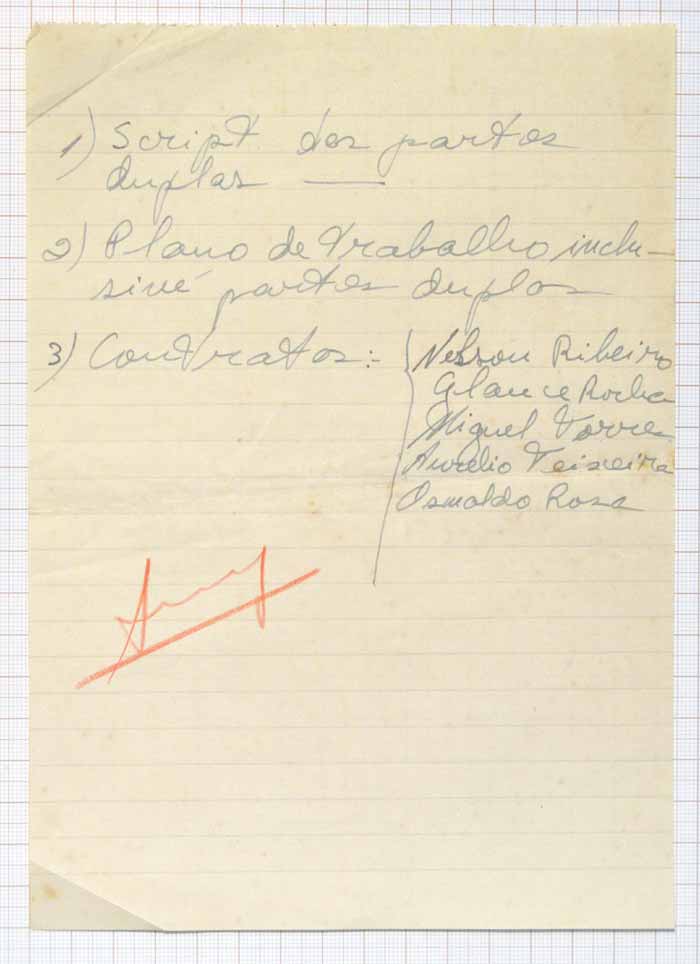 1) Script das partes
duplas —
2) Plano de Trabalho inclu-
sivé partes duplas
3) Contratos:- { Nelson Ribeiro
Glauce Rocha
Miguel Torres
Aurélio Teixeira
Osmaldo Rosa